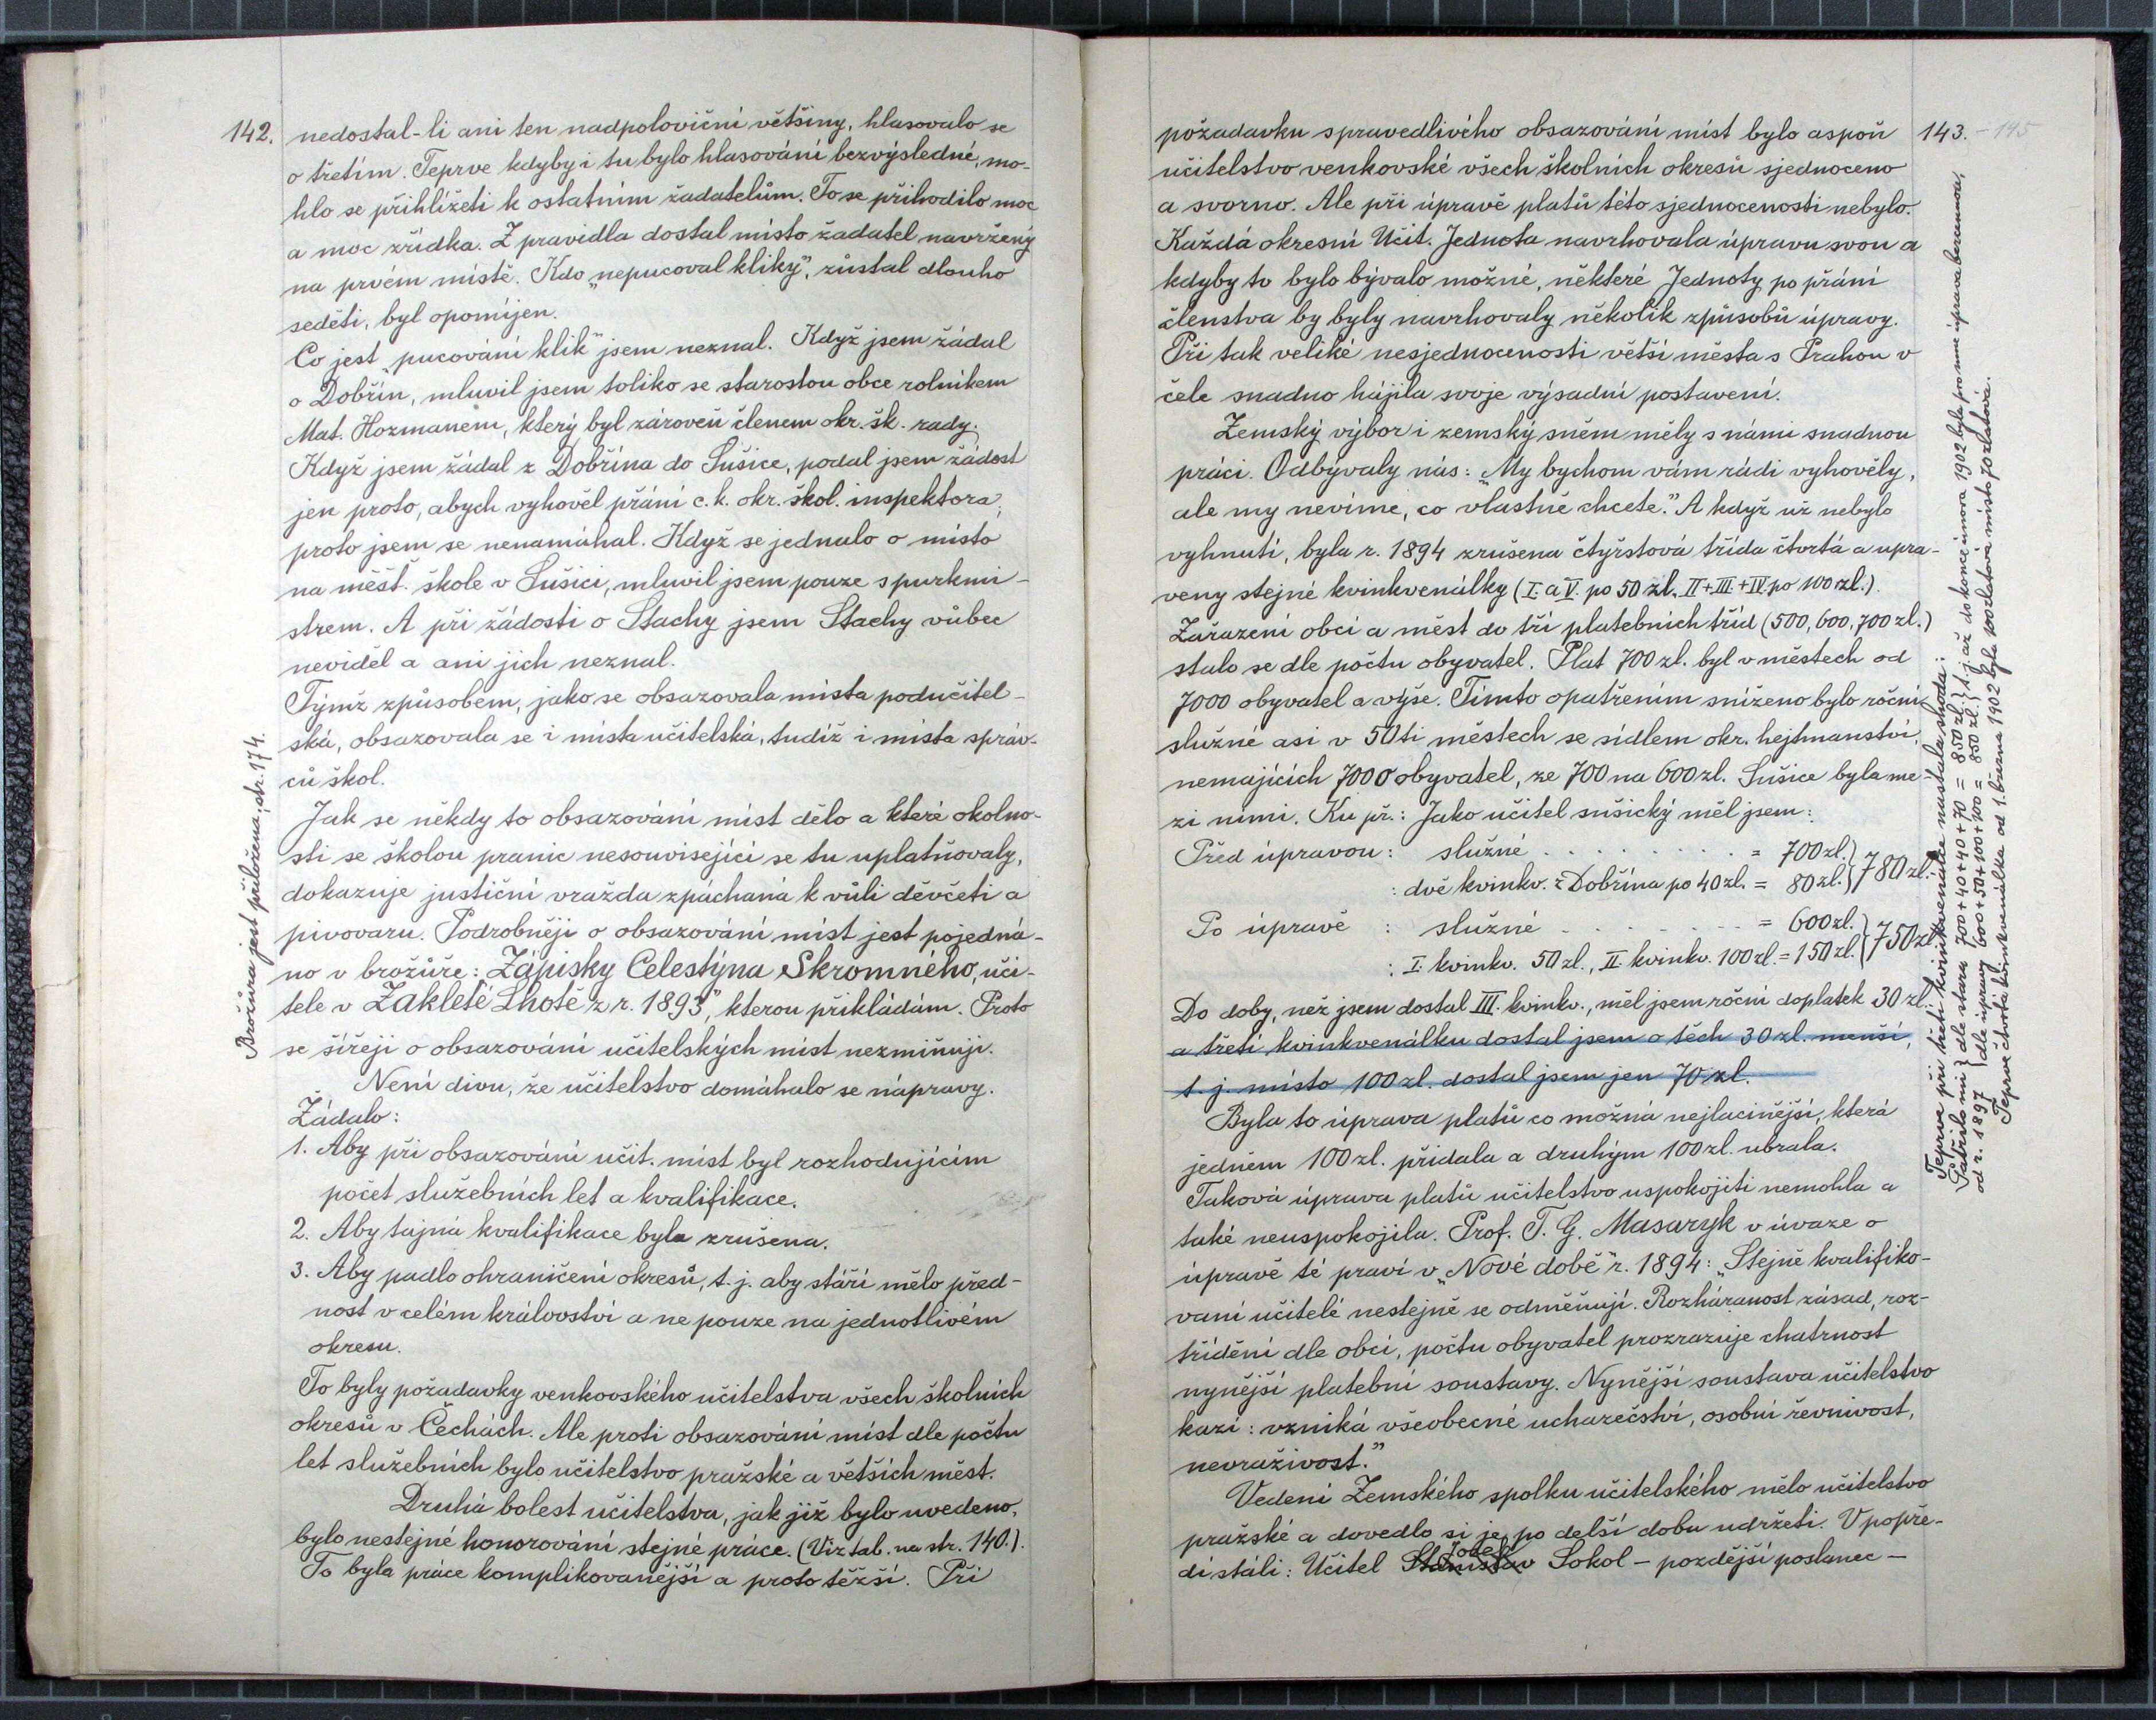 142.
nedostal-li ani ten nadpoloviční většiny, hlasovalo se
o třetím. Teprve kdyby i tu bylo hlasování bezvýsledné, mo-
hlo se přihlížeti k ostatním žadatelům. To se přihodilo moc
a moc zřídka. Z pravidla dostal místo žadatel navržený
na prvém místě. Kdo „nepucoval kliky", zůstal dlouho
seděti, byl opomíjen.
Co jest „pucování klik" jsem neznal. Když jsem žádal
o Dobřín, mluvil jsem toliko se starostou obce rolníkem
Mat. Hozmanem, který byl zároveň členem okr. šk. rady.
Když jsem žádal z Dobřína do Sušice, podal jsem žádost
jen proto, abych vyhověl přání c. k. okr. škol. inspektora,
proto jsem se nenamáhal. Když se jednalo o místo
na měšť. škole v Sušici, mluvil jsem pouze s purkmi-
strem. A při žádosti o Stachy jsem Stachy vůbec
neviděl a ani jich neznal.
Týmž způsobem, jako se obsazovala místa podučitel-
ská, obsazovala se i místa učitelská, tudíž i místa správ-
ců škol.
Jak se někdy to obsazování míst dělo a které okolno-
sti se školou pranic nesouvisející se tu uplatňovaly,
dokazuje justiční vražda zpáchaná k vůli děvčeti a
pivovaru. Podrobněji o obsazování míst jest pojedná-
no v brožůře: Zápisky Celestýna Skromného, uči-
tele v Zakleté Lhotě z r. 1893", kterou přikládám. Proto
se šířeji o obsazování učitelských míst nezmiňuji.
Není divu, že učitelstvo domáhalo se nápravy.
Žádalo:
1. Aby při obsazování učit. míst byl rozhodujícím
počet služebních let a kvalifikace.
2. Aby tajná kvalifikace byla zrušena.
3. Aby padlo ohraničení okresů, t. j. aby stáří mělo před-
nost v celém království a ne pouze na jednotlivém
okresu.
To byly požadavky venkovského učitelstva všech školních
okresů v Čechách. Ale proti obsazování míst dle počtu
let služebních bylo učitelstvo pražské a větších měst.
Druhá bolest učitelstva, jak již bylo uvedeno,
bylo nestejné honorování stejné práce. (Viz tab. na str. 140.).
To byla práce komplikovanější a proto těžší. Při
Brožura jest přiložena, str. 174.
143. - 145
požadavku spravedlivého obsazování míst bylo aspoň
učitelstvo venkovské všech školních okresů sjednoceno
a svorno. Ale při úpravě platů této sjednocenosti nebylo.
Každá okresní Učit. Jednota navrhovala úpravu svou a
kdyby to bylo bývalo možné, některé Jednoty po přání
členstva by byly navrhovaly několik způsobů úpravy.
Při tak veliké nesjednocenosti větší města s Prahou v
čele snadno hájila svoje výsadní postavení.
Zemský výbor i zemský sněm měly s námi snadnou
práci. Odbývaly nás: „My bychom vám rádi vyhověly,
ale my nevíme, co vlastně chcete." A když už nebylo
vyhnutí, byla r. 1894 zrušena čtyřstová třída čtvrtá a upra-
veny stejné kvinkvenálky (I. a V. po 50 zl., II+III+IV po 100 zl.).
Zařazení obcí a měst do tří platebních tříd (500, 600, 700 zl.)
stalo se dle počtu obyvatel. Plat 700 zl. byl v městech od
7000 obyvatel a výše. Tímto opatřením sníženo bylo roční
služné asi v 50ti městech se sídlem okr. hejtmanství,
nemajících 7000 obyvatel, ze 700 na 600 zl. Sušice byla me-
zi nimi. Ku př.: Jako učitel sušický měl jsem:
Před úpravou: služné . . . . . . . . . = 700 zl. } 780 zl.
: dvě kvinkv. z Dobřína po 40 zl. = 80 zl.
Po úpravě : služné . . . . . . . . = 600 zl. } 750 zl.
: I. kvinkv. 50 zl., II. kvinkv. 100 zl. = 150 zl.
Do doby, než jsem dostal III. kvinkv., měl jsem roční doplatek 30 zl.
a třetí kvinkvenálku dostal jsem o těch 30 zl. menší,
t. j. místo 100 zl. dostal jsem jen 70 zl.
Byla to úprava platů co možná nejlacinější, která
jedněm 100 zl. přidala a druhým 100 zl. ubrala.
Taková úprava platů učitelstvo uspokojiti nemohla a
také neuspokojila. Prof. T. G. Masaryk v úvaze o
úpravě té praví v „Nové době" r. 1894: „Stejně kvalifiko-
vaní učitelé nestejně se odměňují. Rozháranost zásad, roz-
třídění dle obcí, počtu obyvatel prozrazuje chatrnost
nynější platební soustavy. Nynější soustava učitelstvo
kazí: vzniká všeobecné uchazečství, osobní řevnivost,
nevraživost."
Vedení Zemského spolku učitelského mělo učitelstvo
pražské a dovedlo si je po delší dobu udržeti. V popře-
dí stáli: Učitel Stanislav Josef Sokol - pozdější poslanec -
Teprve při třetí kvinkvenálce nastala shoda:
Patřilo mi } dle staru 700+40+40+70 = 850 zl. } t. j. až do konce února 1902 byla pro mne úprava bezcenná,
od r. 1897 } dle úpravy 600+50+100+100 = 850 zl.
Teprve čtvrtá kvinkvenálka od 1. března 1902 byla 100 zlatová místo 70 zlatové.